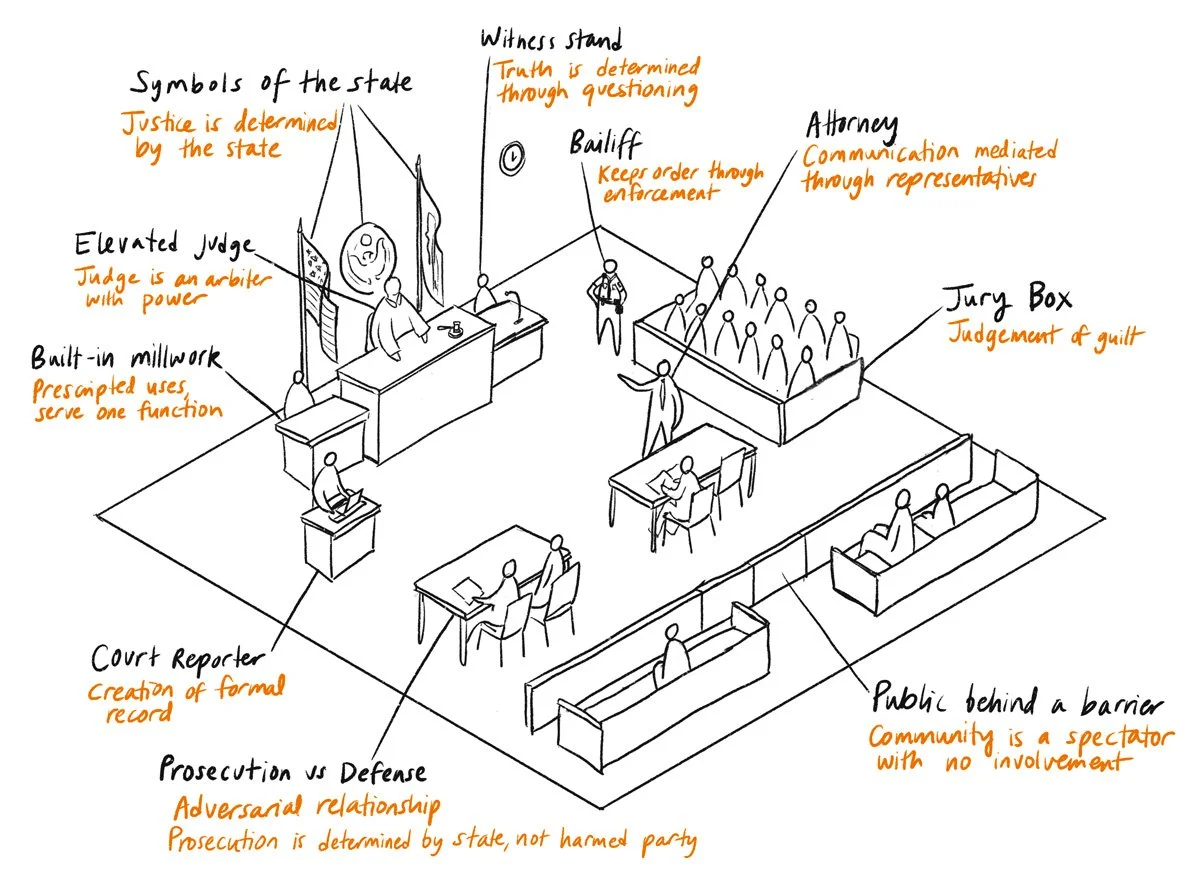 Witness stand
Truth is determined
through questioning
Symbols of the state
Justice is determined
by the state
Bailiff
Keeps order through
enforcement
Attorney
Communication mediated
through representatives
Elevated judge
Judge is an arbiter
with power
Jury Box
Judgement of guilt
Built-in millwork
Prescripted uses,
serve one function
Court Reporter
Creation of formal
record
Public behind a barrier
Community is a spectator
with no involvement
Prosecution vs Defense
Adversarial relationship
Prosecution is determined by state, not harmed party